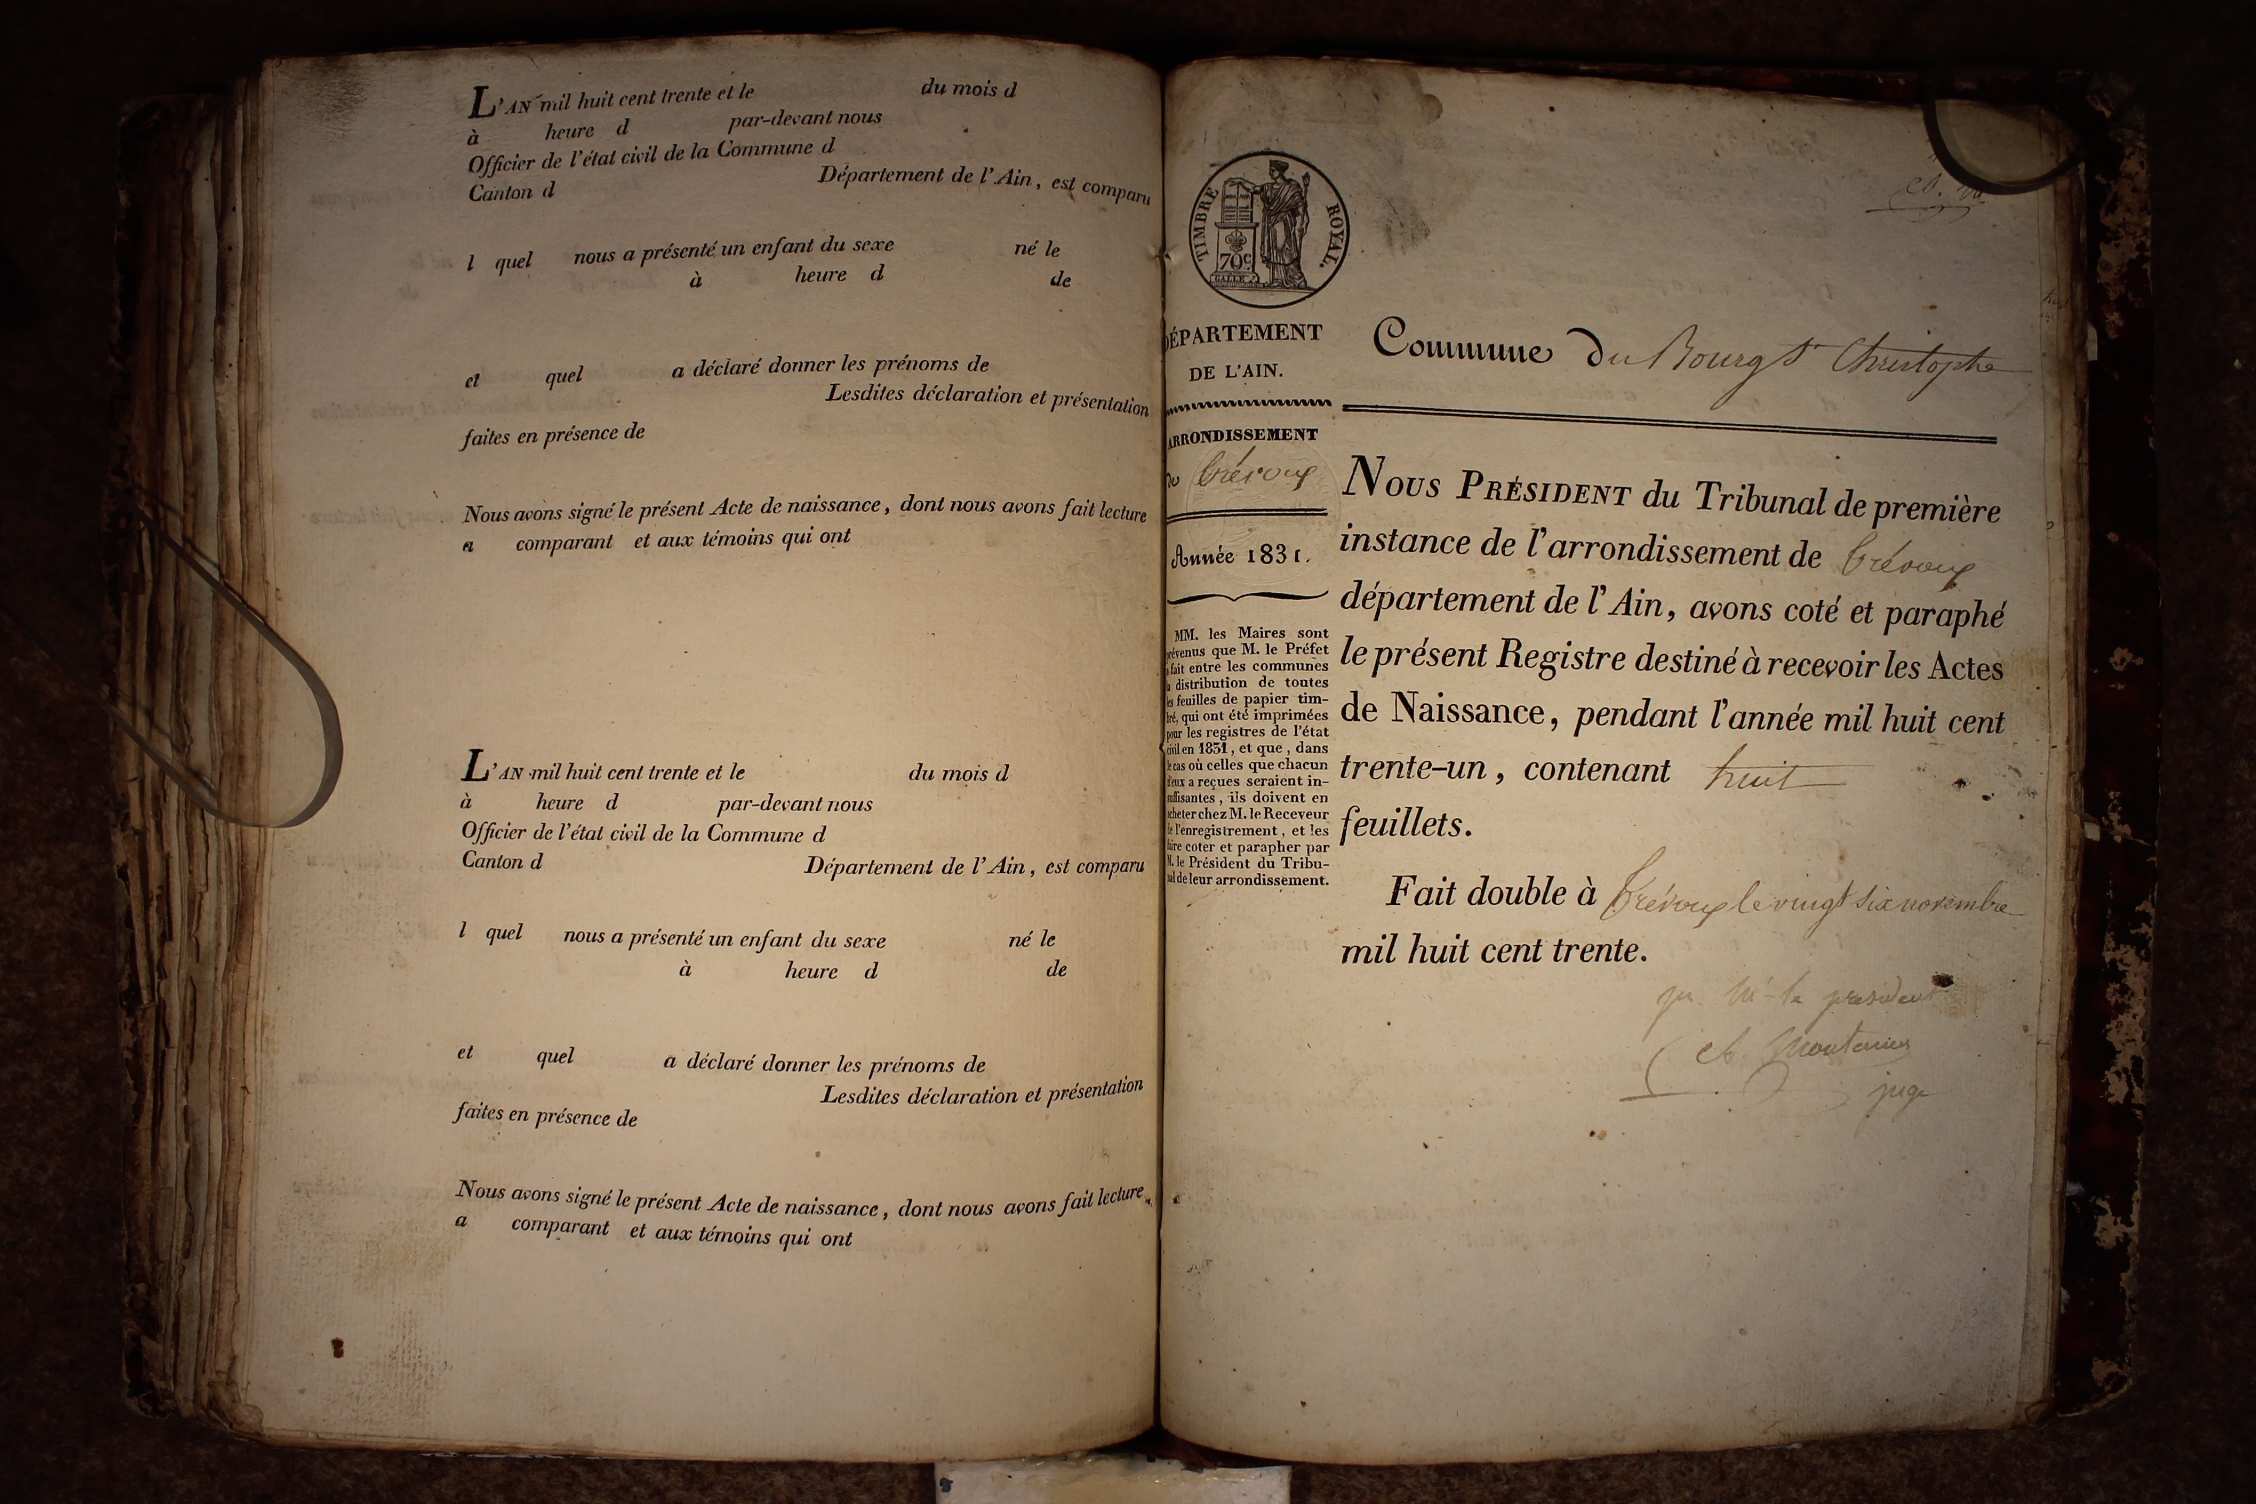 L'AN mil huit cent trente et le du mois d
à heure d par-devant nous
Officier de l'état civil de la Commune d
Canton d Département de l'Ain, est comparu
l quel nous a présenté un enfant du sexe né le
à heure d de
et quel a déclaré donner les prénoms de
Lesdites déclaration et présentation
faites en présence de
Nous avons signé le présent Acte de naissance, dont nous avons fait lecture
a comparant et aux témoins qui ont
L'AN mil huit cent trente et le du mois d
à heure d par-devant nous
Officier de l'état civil de la Commune d
Canton d Département de l'Ain, est comparu
l quel nous a présenté un enfant du sexe né le
à heure d de
et quel a déclaré donner les prénoms de
Lesdites déclaration et présentation
faites en présence de
Nous avons signé le présent Acte de naissance, dont nous avons fait lecture
a comparant et aux témoins qui ont
TIMBRE ROYAL.
70c
DÉPARTEMENT
DE L'AIN.
ARRONDISSEMENT
de Trévoux
Année 1831.
MM. les Maires sont
prévenus que M. le Préfet
a fait entre les communes
la distribution de toutes
les feuilles de papier tim-
bré, qui ont été imprimées
pour les registres de l'état
civil en 1831, et que, dans
le cas où celles que chacun
d'eux a reçues seraient in-
suffisantes, ils doivent en
acheter chez M. le Receveur
de l'enregistrement, et les
faire coter et parapher par
M. le Président du Tribu-
nal de leur arrondissement.
Commune du Bourg St Christophe
NOUS PRÉSIDENT du Tribunal de première
instance de l'arrondissement de Trévoux
département de l'Ain, avons coté et paraphé
le présent Registre destiné à recevoir les Actes
de Naissance, pendant l'année mil huit cent
trente-un, contenant huit
feuillets.
Fait double à Trévoux le vingt six novembre
mil huit cent trente.
le president
juge